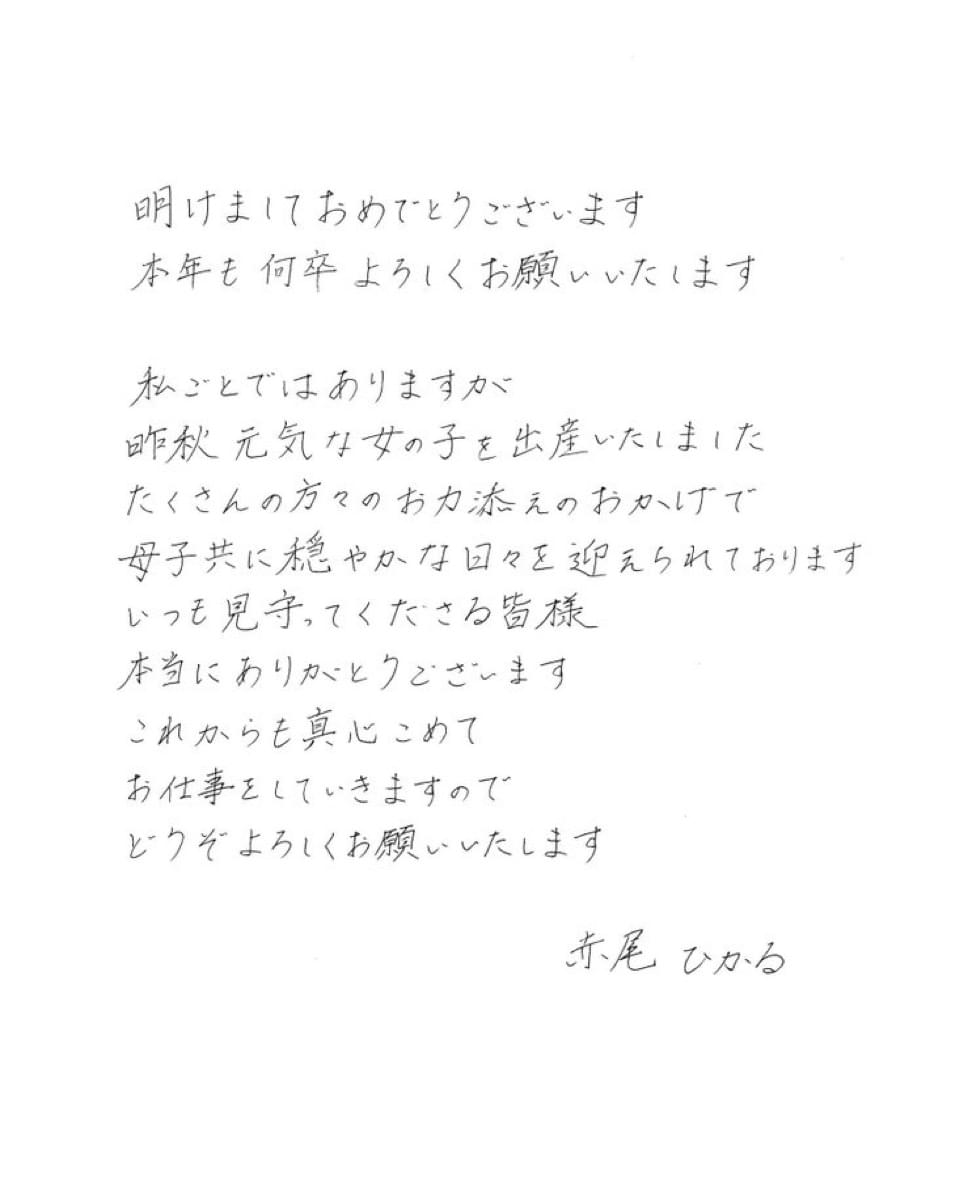 明けましておめでとうございます
本年も何卒よろしくお願いいたします
私ごとではありますが
昨秋元気な女の子を出産いたしました
たくさんの方々のお力添えのおかげで
母子共に穏やかな日々を迎えられております
いつも見守ってくださる皆様
本当にありがとうございます
これからも真心こめて
お仕事をしていきますので
どうぞよろしくお願いいたします
赤尾 ひかる